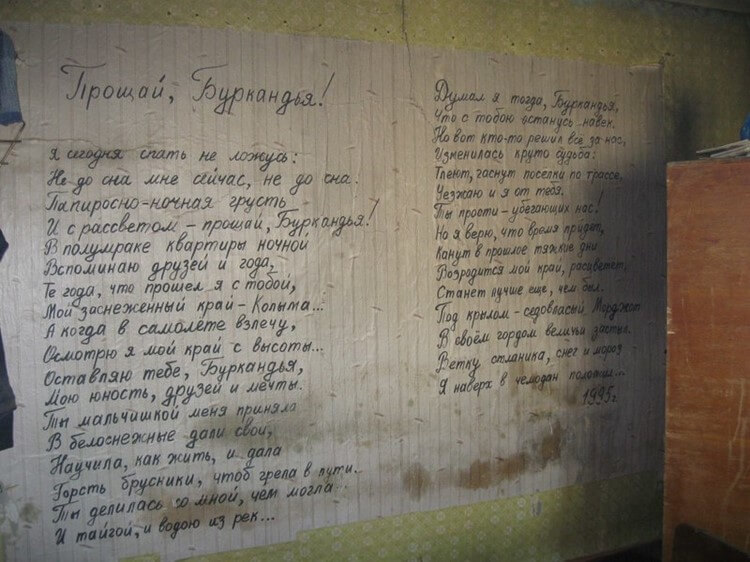 Прощай, Буркандья!
Я сегодня спать не ложусь:
Не до сна мне сейчас, не до сна.
Папиросно-ночная грусть
И с рассветом – прощай, Буркандья!
В полумраке квартиры ночной
Вспоминаю друзей и года,
Те года, что прошел я с тобой,
Мой заснеженный край – Колыма...
А когда в самолёте взлечу,
Осмотрю я мой край с высоты...
Оставляю тебе, Буркандья,
Мою юность, друзей и мечты.
Ты мальчишкой меня приняла
В белоснежные дали свои,
Научила, как жить, и дала
Горсть брусники, чтоб грела в пути...
Ты делилась со мной, чем могла...
И тайгой, и водою из рек...
Думал я тогда, Буркандья,
Что с тобою останусь навек.
Но вот кто-то решил всё за нас,
Изменилась круто судьба:
Тлеют, гаснут поселки по трассе,
Уезжаю и я от тебя.
Ты прости – убегающих нас!
Но я верю, что время придет,
Канут в прошлое тяжкие дни
Возродится мой край, расцветет,
Станет лучше еще, чем был.
Под крылом – седовласый Морджот
В своём гордом величьи застыл.
Ветку стланика, снег и мороз
Я наверх в чемодан положил...
1995г.